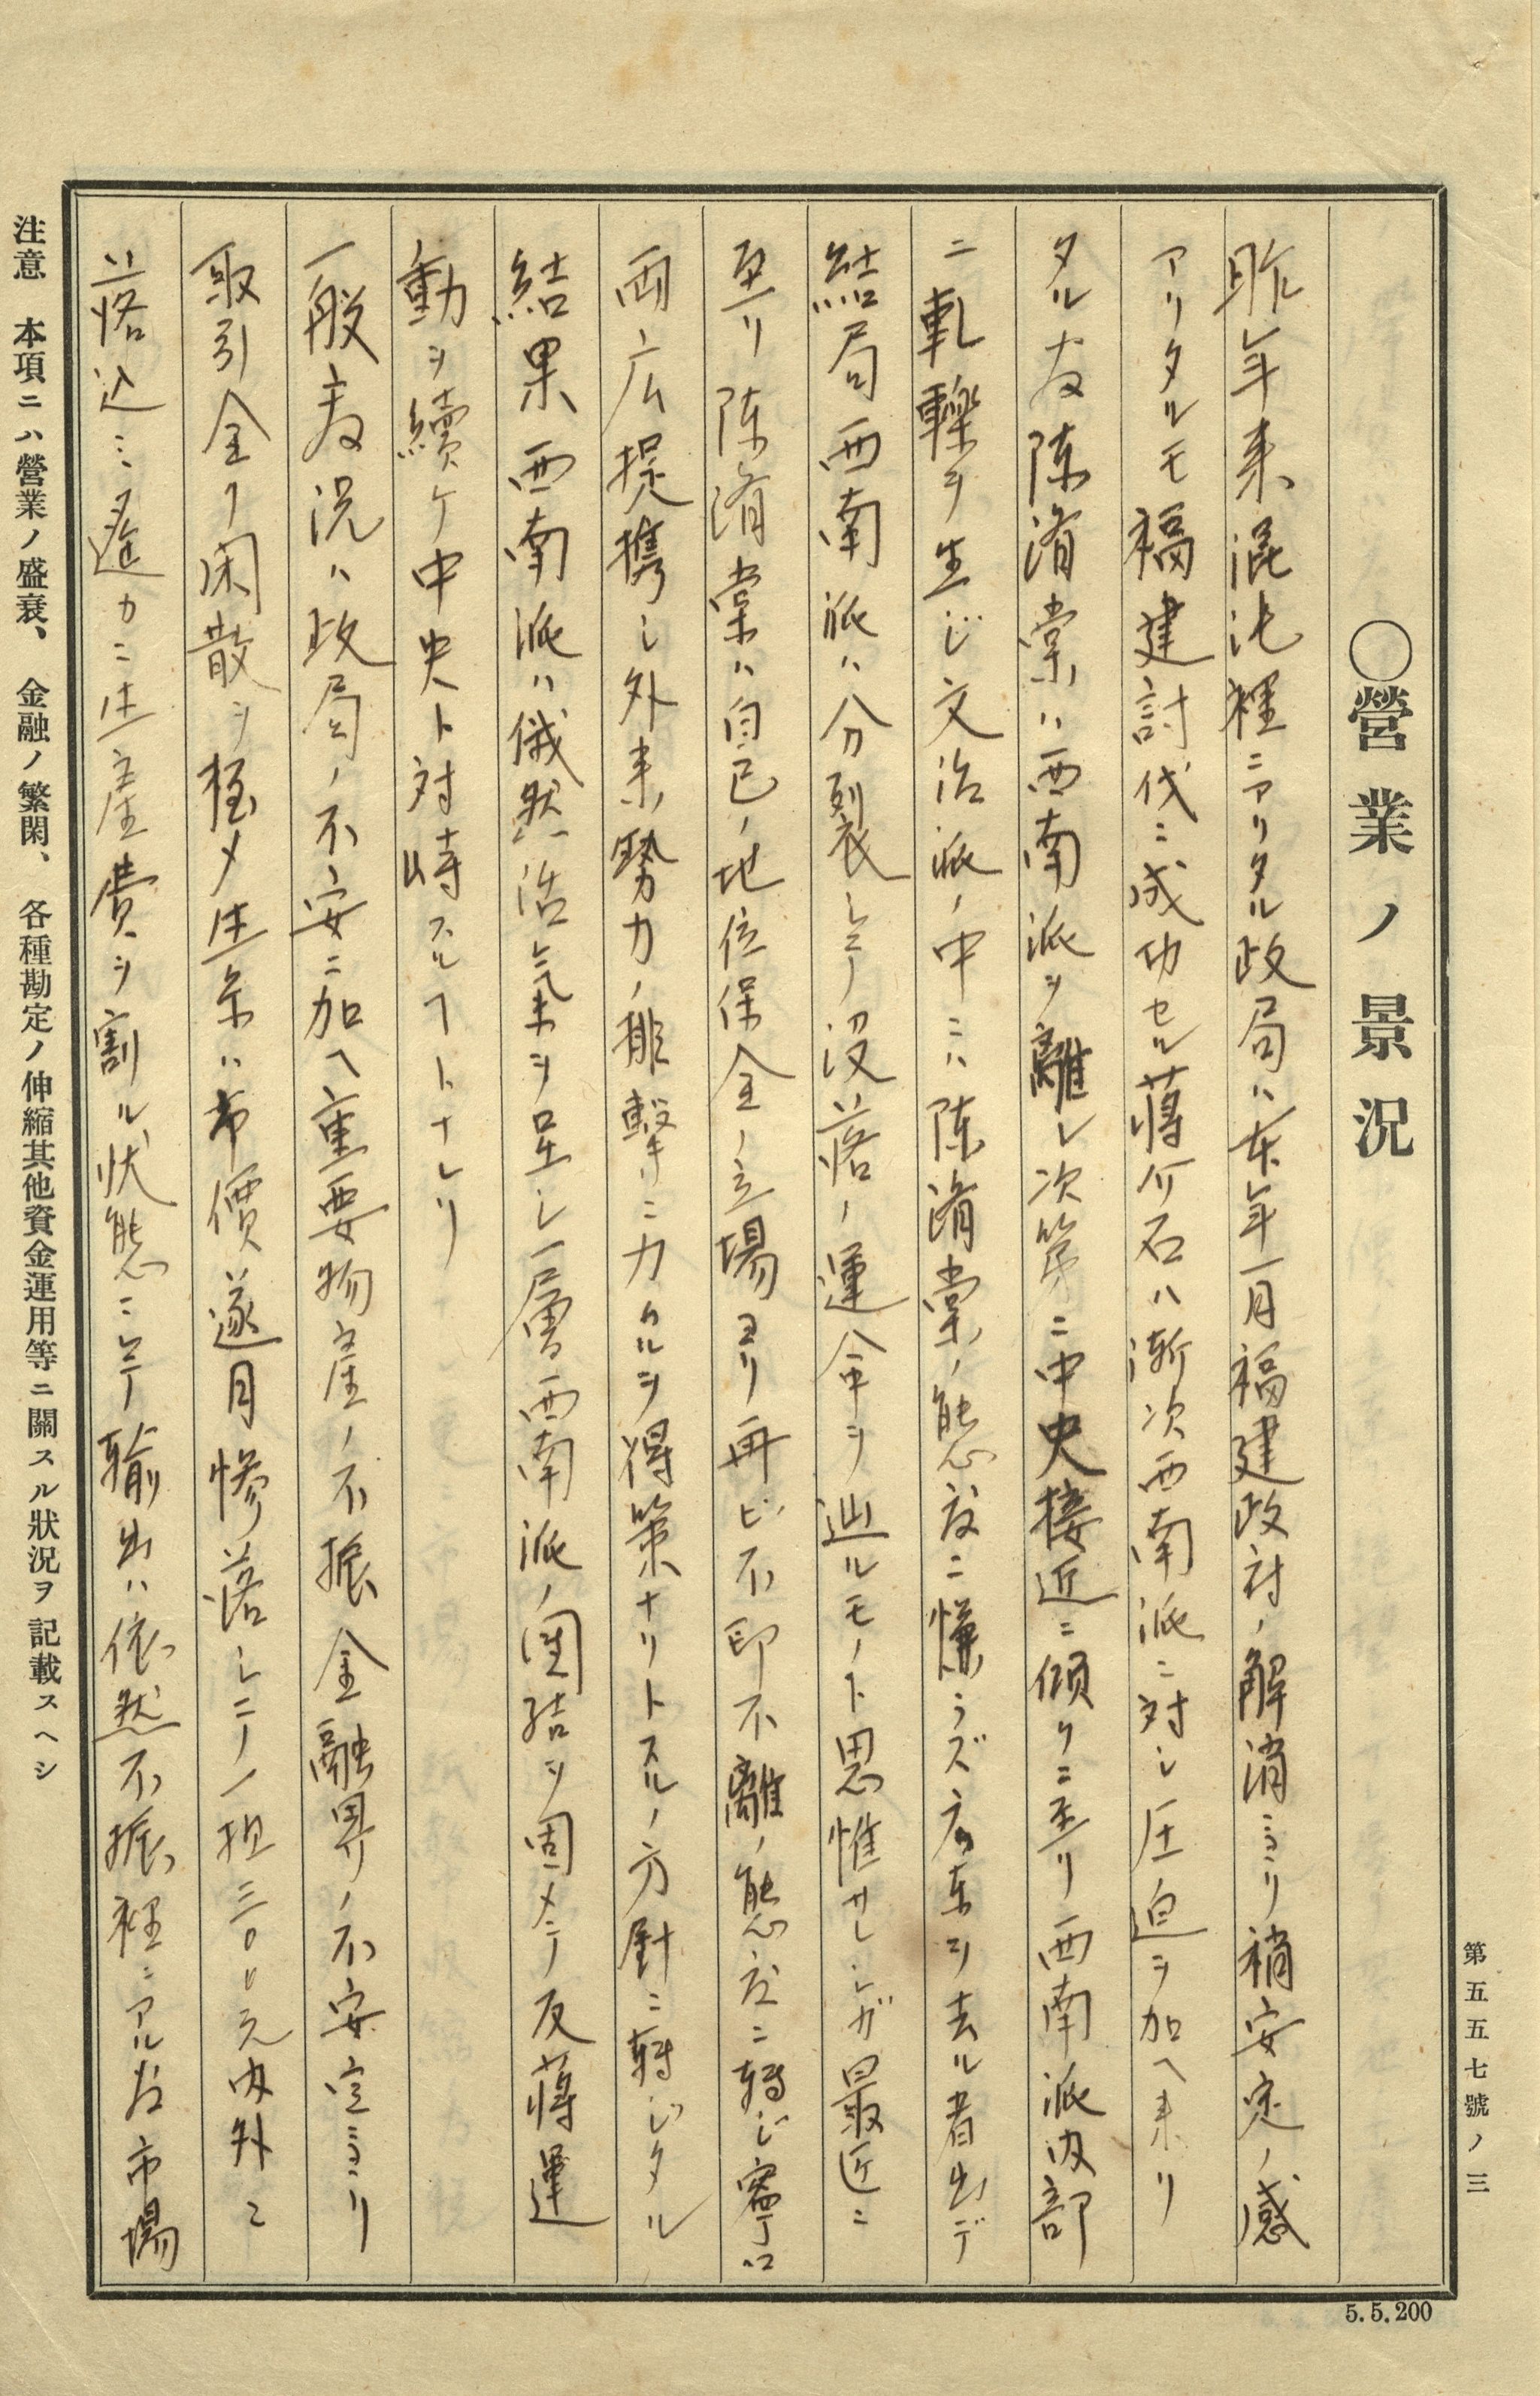 第五五七號ノ三
○營業ノ景況
昨年来混沌裡ニアリタル政局ハ本年一月福建政府ノ解消ニヨリ稍安定ノ感
アリタルモ福建討伐ニ成功セル蔣介石ハ漸次西南派ニ対シ圧迫ヲ加ヘ来リ
タル為陳済棠ハ西南派ヲ離レ次第ニ中央接近ニ傾クニ至リ西南派内部
ニ軋轢ヲ生ジ文治派ノ中ニハ陳済棠ノ態度ニ慊ラズ広東ヨリ去ル者出デ
結局西南派ハ分裂シテ没落ノ運命ヲ辿ルモノト思惟サレシガ最近ニ
至リ陳済棠ハ自己ノ地位保全ノ立場ヨリ再ビ不即不離ノ態度ニ転ジ寧ロ
両広提携シ外来勢力ノ排撃ニ力ムルヲ得策ナリトスルノ方針ニ転ジタル
結果西南派ハ俄然活氣ヲ呈シ一層西南派ノ団結ヲ固メテ反蔣運
動ヲ続ケ中央ト対峙スルコトトナレリ
一般商況ハ政局ノ不安ニ加ヘ重要物産ノ不振金融界ノ不安定ニヨリ
取引全ク閑散ヲ極メ生糸ハ市價遂月惨落シテ一担三〇〇元内外ニ
落込ミ遙カニ生産費ヲ割ル状態ニシテ輸出ハ依然不振裡ニアル為市場
注意　本項ニハ營業ノ盛衰、金融ノ繁閑、各種勘定ノ伸縮其他資金運用等ニ關スル狀況ヲ記載スヘシ
5.5.200